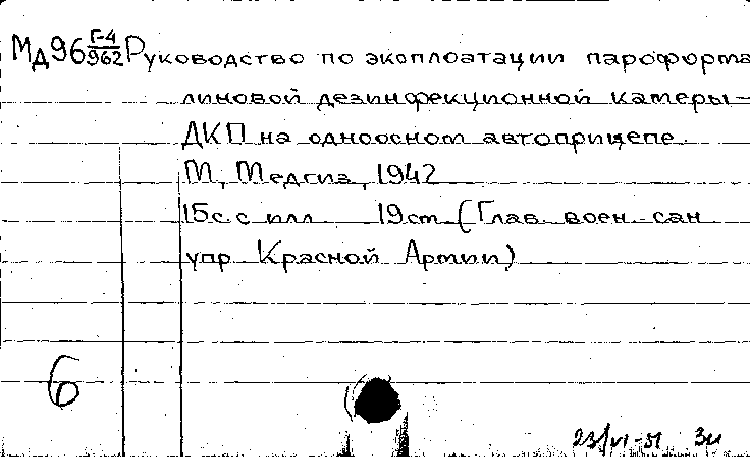 МД96 Г-4/962 Руководство по эксплоатации пароформа
линовой дезинфекционной камеры-
ДКП на одноосном автоприцепе.
М, Медгиз, 1942
15с. с илл 19см (Глав. воен. сан
упр Красной Армии)
6
23/VI-51 Зи